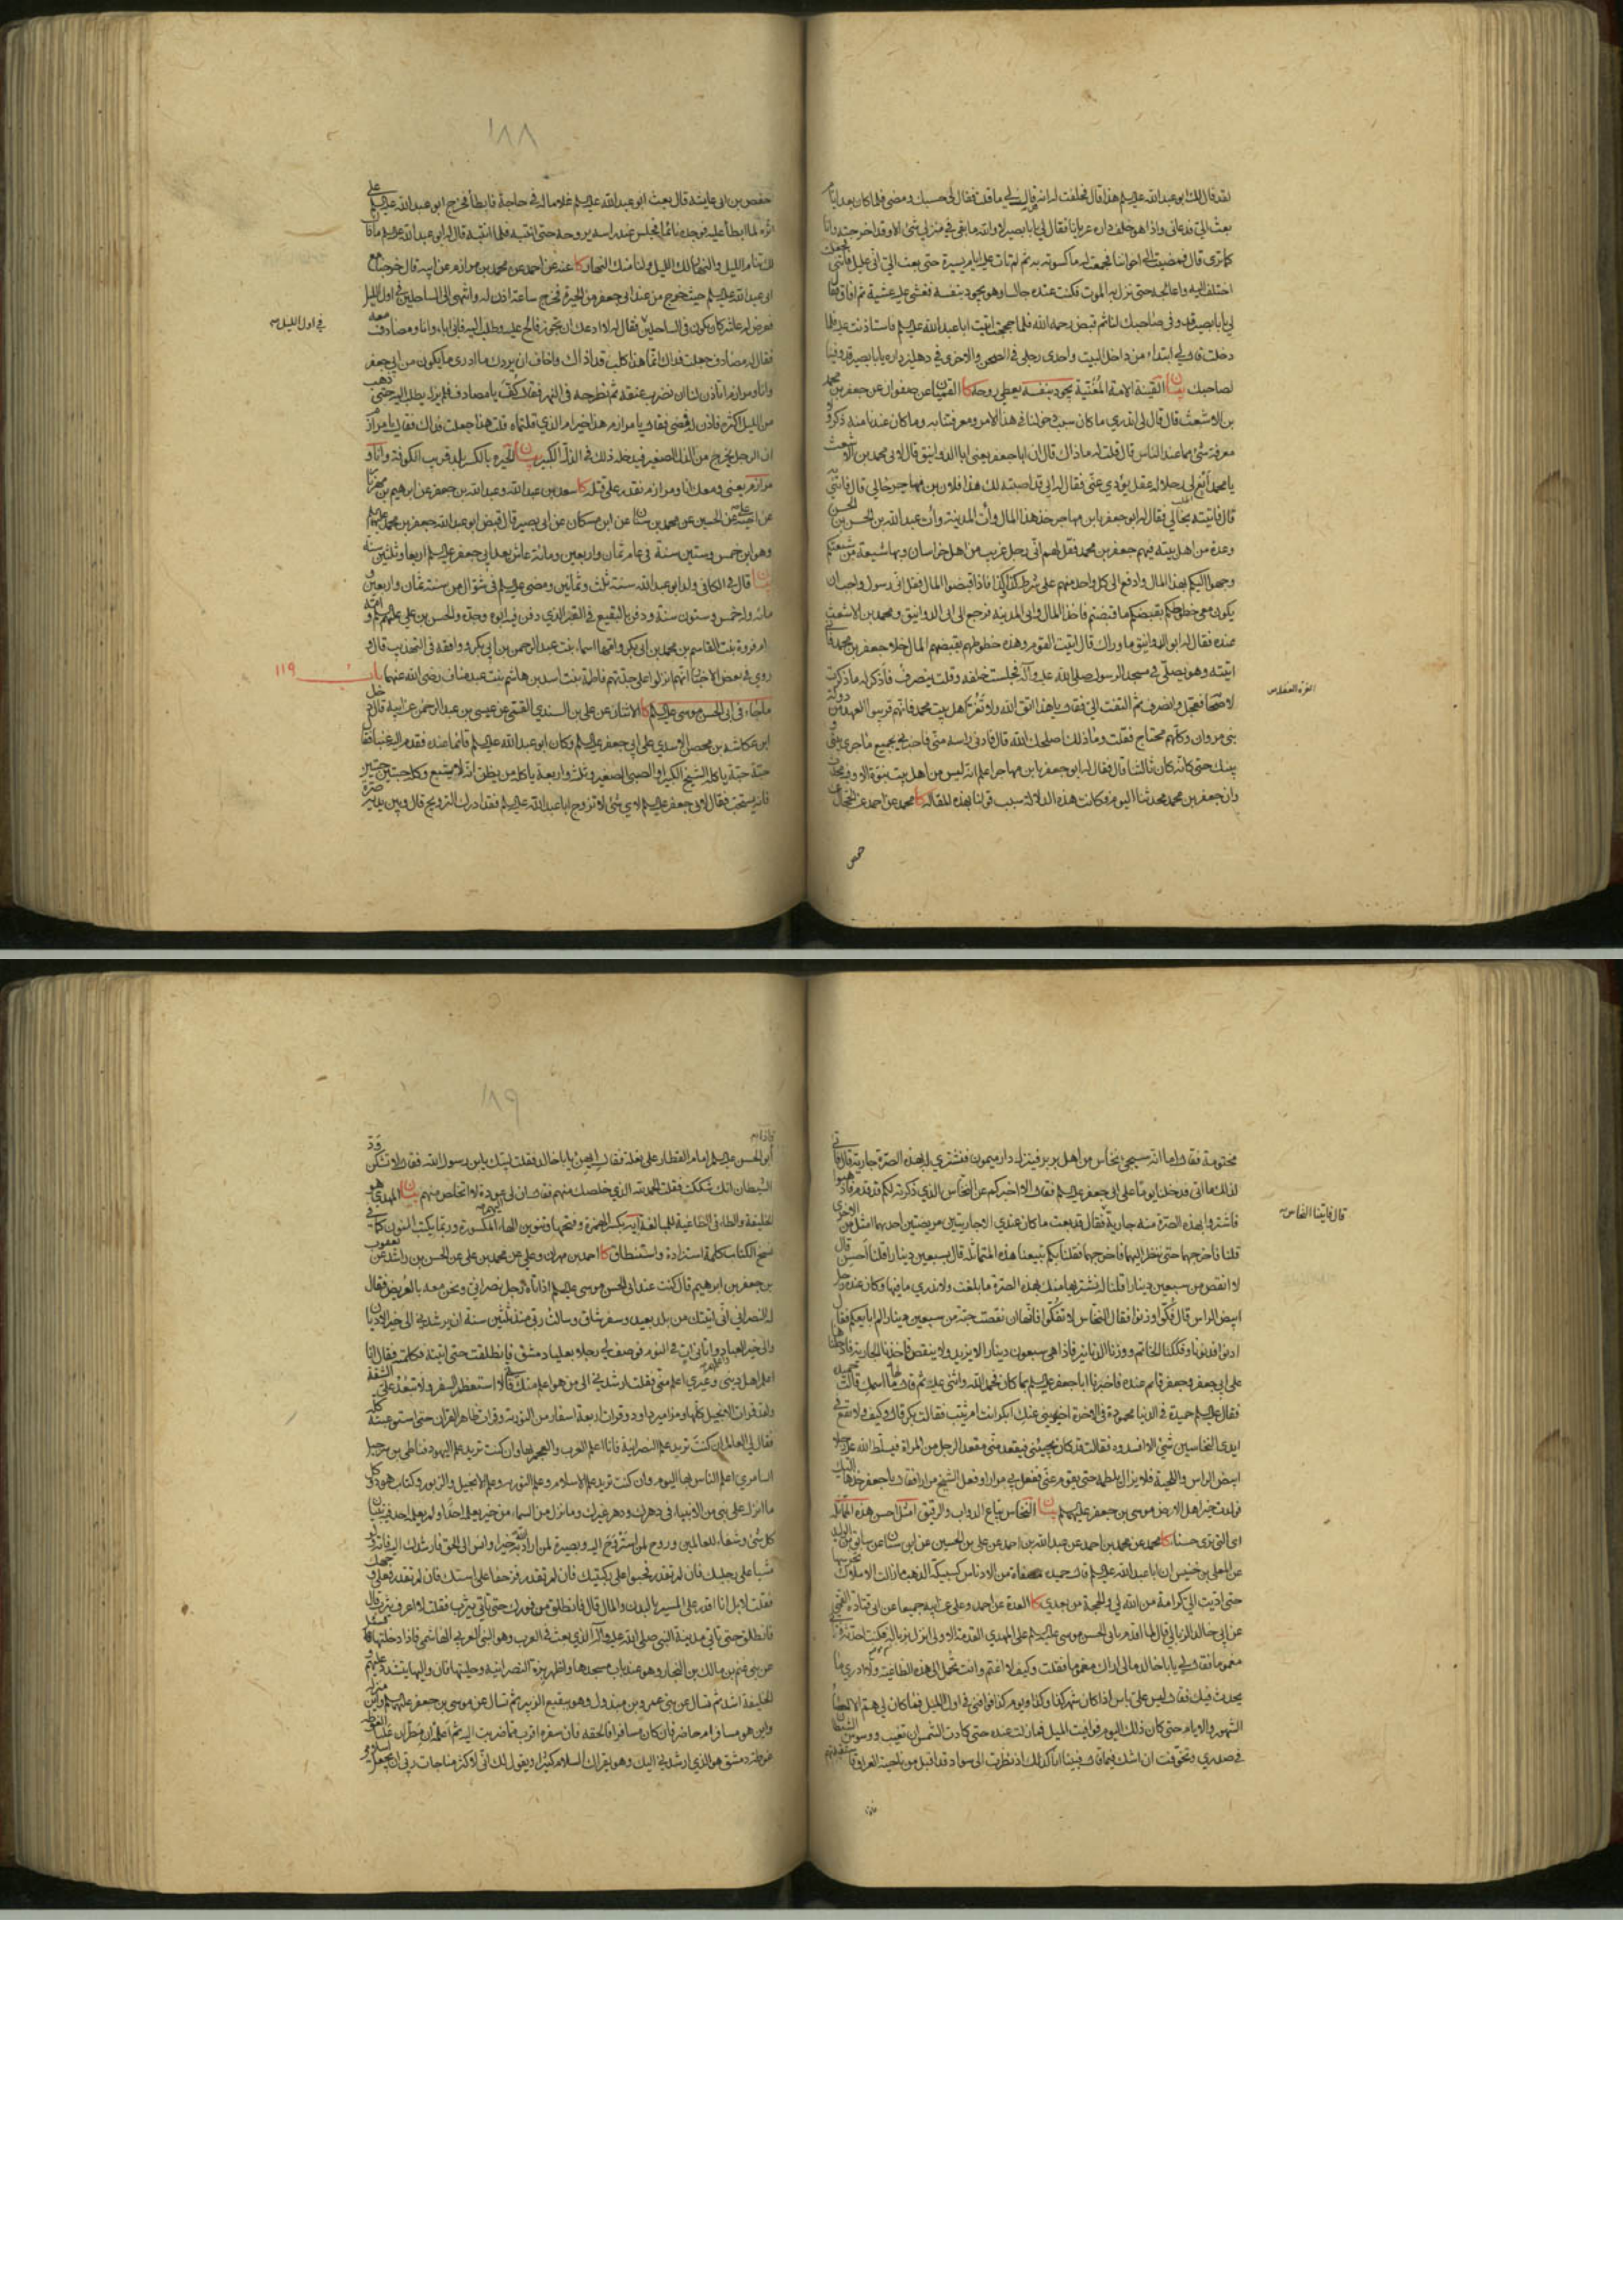 لقد قال لك ابو عبد الله عليه السلام هذا قال فحلفت له انه قال لي ما قلت فقال لي حسبك ومضى فلما كان بعد ايام
بعث الي فدعاني واذا هو خلف داره عريانا فقال لي يا با بصير لا والله ما بقي في منزلي شئ الا وقد اخرجته وانا
كما ترى قال فمضيت الى اخواننا فجمعت له ما كسوته به ثم لم تات عليه ايام يسيرة حتى بعث الي اني عليل فأتني فجعلت
اختلف اليه واعالجه حتى نزل به الموت فكنت عنده جالسا وهو يجود بنفسه فغشي عليه غشية ثم افاق فقال
لي يا با بصير قد وفى صاحبك لنا ثم قبض رحمه الله فلما حججت اتيت ابا عبد الله عليه السلام فاستاذنت عليه فلما
دخلت قال لي ابتداء من داخل البيت واحدى رجلي في الصحن والاخرى في دهليز داره يا با بصير قد وفينا
لصاحبك بيان القينة الامة المغنية يجود بنفسه يعطي روحه كا القميان عن صفوان عن جعفر بن محمد
بن الاشعث قال قال لي اتدري ما كان سبب دخولنا في هذا الامر ومعرفتنا به وما كان عندنا منه ذكر ولا
معرفة شئ مما عند الناس قال قلت له ما ذاك قال ان ابا جعفر يعني ابا الدوانيق قال لابي محمد بن الاشعث
يا محمد ابغ لي رجلا له عقل يؤدي عني فقال له ابي قد اصبته لك هذا فلان بن مهاجر خالي قال فأتني به
قال فاتيته بخالي فقال له ابو جعفر يا بن مهاجر خذ هذا المال وأت المدينة وأت عبد الله بن الحسن بن الحسن
وعدة من اهل بيته فيهم جعفر بن محمد فقل لهم اني رجل غريب من اهل خراسان وبها شيعة من شيعتكم
وجهوا اليكم بهذا المال وادفع الى كل واحد منهم على شرط كذا وكذا فاذا قبضوا المال فقل اني رسول واحب ان
يكون معي خطوطكم بقبضكم ما قبضتم فاخذ المال واتى المدينة فرجع الى ابي الدوانيق ومحمد بن الاشعث
عنده فقال له ابو الدوانيق ما وراك قال اتيت القوم وهذه خطوطهم بقبضهم المال خلا جعفر بن محمد فاني
اتيته وهو يصلي في مسجد الرسول صلى الله عليه وآله فجلست خلفه وقلت ينصرف فاذكر له ما ذكرت
لاصحابه فعجل وانصرف ثم التفت الي فقال يا هذا اتق الله ولا تغر اهل بيت محمد فانهم قريبوا العهد من دولة
بني مروان وكلهم محتاج فقلت وما ذلك اصلحك الله قال فادنى راسه مني فاخبرني بجميع ما جرى بيني و
بينك حتى كانه كان ثالثنا قال فقال له ابو جعفر يا بن مهاجر اعلم انه ليس من اهل بيت نبوة الا وفيه محدث
وان جعفر بن محمد محدثنا اليوم فكانت هذه الدلالة سبب قولنا بهذه المقالة كا محمد عن احمد عن الحجال عن
حفص
١٨٨
حفص بن ابي عايشة قال بعث ابو عبد الله عليه السلام غلاما له في حاجة فابطأ فخرج ابو عبد الله عليه السلام على
اثره لما ابطأ عليه فوجده نائما فجلس عند راسه يروحه حتى انتبه فلما انتبه قال له ابو عبد الله عليه السلام يا فلان
لك تنام الليل والنهار لك الليل ولنا منك النهار كا عنه عن احمد عن محمد بن مرازم عن ابيه قال خرجنا مع
ابي عبد الله عليه السلام حيث خرج من عند ابي جعفر من الحيرة فخرج ساعة اذن له وانتهى الى الساحلين في اول الليل
في اول الليل
فعرض له عاشر كان يكون في الساحلين فقال له لا ادعك ان تجوز فالح عليه وطلب اليه فابى اباء وانا ومصادف معه
فقال له مصادف جعلت فداك انما هذا كلب قد اذاك واخاف ان يردك وما ادري ما يكون من ابي جعفر
وانا ومرازم اتأذن لنا ان نضرب عنقه ثم نطرحه في النهر فقال كف يا مصادف فلم يزل يطلب اليه حتى ذهب
من الليل اكثره فاذن له فمضى فقال يا مرازم هذا خير ام الذي قلتماه قلت هذا جعلت فداك فقال يا مرازم
ان الرجل يخرج من الذل الصغير فيدخله ذلك في الذل الكبير بيان الحيرة بالكسر بلد قريب الكوفة وانا و
مرازم يعني ومعك انا ومرازم نقدر على قتله كا سعد بن عبد الله وعبد الله بن جعفر عن ابرهيم بن مهزيار
عن اخيه علي عن الحسين عن محمد بن سنان عن ابن مسكان عن ابي بصير قال قبض ابو عبد الله جعفر بن محمد عليهما السلام
وهو ابن خمس وستين سنة في عام ثمان واربعين ومائة عاش بعد ابي جعفر عليه السلام اربعا وثلثين سنة
بيان قال في الكافي ولد ابو عبد الله سنة ثلث وثمانين ومضى عليه السلام في شوال من سنة ثمان واربعين و
مائة وله خمس وستون سنة ودفن بالبقيع في القبر الذي دفن فيه ابوه وجده والحسن بن علي عليهم السلام وامه
ام فروة بنت القاسم بن محمد بن ابي بكر وامها اسماء بنت عبد الرحمن بن ابي بكر ووافقه في التهذيب قال و
روي في بعض الاخبار انهم انزلوا على جدتهم فاطمة بنت اسد بن هاشم بنت عبد مناف رضي الله عنها باب ١١٩
ما جاء في ابي الحسن موسى عليه السلام كا الاثنان عن علي بن السندي القمي عن عيسى بن عبد الرحمن عن ابيه قال دخل
ابن عكاشة بن محصن الاسدي على ابي جعفر عليه السلام وكان ابو عبد الله عليه السلام قائما عنده فقدم اليه عنبا فقال
حبة حبة ياكله الشيخ الكبير او الصبي الصغير وثلثة واربعة ياكله من يظن انه لا يشبع وكله حبتين حبتين
فانه يستحب فقال لابي جعفر عليه السلام لاي شئ لا تزوج ابا عبد الله عليه السلام فقد ادرك التزويج قال وبين يديه صرة
مختومة فقال اما انه سيجئ نخاس من اهل بربر فينزل دار ميمون فنشتري له بهذه الصرة جارية قال فاتى
لذلك ما اتى فدخلنا يوما على ابي جعفر عليه السلام فقال الا اخبركم عن النخاس الذي ذكرته لكم قد قدم فاذهبوا
فاشتروا بهذه الصرة منه جارية فقال قد بعت ما كان عندي الا جاريتين مريضتين احديهما امثل من الاخرى
قال فاتينا النخاس
قلنا فاخرجهما حتى ننظر اليهما فاخرجهما فقلنا بكم تبيعنا هذه المتماثلة قال بسبعين دينارا قلنا احسن قال
لا انقص من سبعين دينارا قلنا له نشتريها منك بهذه الصرة ما بلغت ولا ندري ما فيها وكان عنده رجل
ابيض الراس قال فكوا وزنوا فقال النخاس لا تفكوا فانها ان نقصت حبة من سبعين دينارا لم ابايعكم فقال
ادنوا فدنونا وفككنا الخاتم ووزنا الدنانير فاذا هي سبعون دينارا لا يزيد ولا ينقص فاخذنا الجارية فادخلناها
على ابي جعفر وجعفر قائم عنده فاخبرنا ابا جعفر عليه السلام بما كان فحمد الله واثنى عليه ثم قال لها ما اسمك قالت حميدة
فقال عليه السلام حميدة في الدنيا محمودة في الاخرة اخبريني عنك ابكر انت ام ثيب فقالت بكر قال وكيف ولا يقع في
ايدي النخاسين شئ الا افسدوه فقالت قد كان يجيئني فيقعد مني مقعد الرجل من المراة فيسلط الله عليه رجلا
ابيض الراس واللحية فلا يزال يلطمه حتى يقوم عني ففعل بي مرارا وفعل الشيخ مرارا فقال يا جعفر خذها اليك
فولدت خير اهل الارض موسى بن جعفر عليهما السلام بيان النخاس بياع الدواب والرقيق امثل احسن هذه المتماثلة
اي التي ترى حسنا كا محمد عن محمد بن احمد عن عبد الله بن احمد عن علي بن الحسين عن ابن سنان عن سابق بن الوليد
عن المعلى بن خنيس ان ابا عبد الله عليه السلام قال حميدة مصفاة من الادناس كسبيكة الذهب ما زالت الاملاك تحرسها
حتى اديت الي كرامة من الله لي والحجة من بعدي كا العدة عن احمد وعلي عن ابيه جميعا عن ابي قتادة القمي
عن ابي خالد الزبالي قال لما اقدم بابي الحسن موسى عليه السلام على المهدي القدمة الاولى نزل زبالة فكنت احدثه فرآني
مغموما فقال لي يا با خالد ما لي اراك مغموما فقلت وكيف لا اغتم وانت تحمل الى هذه الطاغية ولا ادري ما
يحدث فيك فقال ليس علي باس اذا كان شهر كذا وكذا ويوم كذا فوافني في اول الميل فما كان لي هم الا احصاء
الشهور والايام حتى كان ذلك اليوم فوافيت الميل فما زلت عنده حتى كادت الشمس ان تغيب ووسوس الشيطان
في صدري وتخوفت ان اشك فيما قال فبينا انا كذلك اذ نظرت الى سواد قد اقبل من ناحية العراق فاستقبلتهم
فاذا
١٨٩
فاذا
ابو الحسن عليه السلام امام القطار على بغلة فقال ايهن يا با خالد فقلت لبيك يا بن رسول الله فقال لا تشكن ود
الشيطان انك شككت فقلت الحمد لله الذي خلصك منهم فقال ان لي عودة لا اتخلص منهم بيان المهدي هو
الخليفة والطاء في الطاغية للمبالغة ايه بكسر الهمزة وفتحها وتنوين الهاء المكسورة وربما يكتب النون كما في
نسخ الكتاب كلمة استزادة واستنطاق كا احمد بن مهران وعلي عن محمد بن علي عن الحسن بن راشد عن يعقوب
بن جعفر بن ابرهيم قال كنت عند ابي الحسن موسى عليه السلام اذ اتاه رجل نصراني ونحن معه بالعريض فقال
له النصراني اني اتيتك من بلد بعيد وسفر شاق وسالت ربي منذ ثلثين سنة ان يرشدني الى خير الاديان
والى خير العباد واتاني آت في النوم فوصف لي رجلا بعليا دمشق فانطلقت حتى اتيته فكلمته فقال انا
اعلم اهل ديني وغيري اعلم مني فقلت ارشدني الى من هو اعلم منك فاني لا استعظم السفر ولا تبعد علي الشقة
ولقد قرات الانجيل كلها ومزامير داود وقرات اربعة اسفار من التورية وقرات ظاهر القران حتى استوعبته كله
فقال لي العالم ان كنت تريد علم النصرانية فانا اعلم العرب والعجم بها وان كنت تريد علم اليهود فباطي بن شرحبيل
السامري اعلم الناس بها اليوم وان كنت تريد علم الاسلام وعلم التورية وعلم الانجيل والزبور وكتاب هود وكل
ما انزل على نبي من الانبياء في دهرك ودهر غيرك وما نزل من السماء من خبر فعلمه احد او لم يعلم احد فيه تبيان
كل شئ وشفاء للعالمين وروح لمن استروح اليه وبصيرة لمن اراد الله به خيرا وانس الى الحق فارشدك اليه فأته ولو
مشيا على رجليك فان لم تقدر فحبوا على ركبتيك فان لم تقدر فزحفا على استك فان لم تقدر فعلى وجهك
فقلت لا بل انا اقدر على المسير بالبدن والمال قال فانطلق من فورك حتى تاتي يثرب فقلت لا اعرف يثرب قال
فانطلق حتى تاتي مدينة النبي صلى الله عليه وآله الذي بعث في العرب وهو النبي العربي الهاشمي فاذا دخلتها فسل
عن بني غنم بن مالك بن النجار وهو عند باب مسجدها واظهر بزة النصرانية وحليتها فان واليها يتشدد عليهم
الخليفة اشد ثم تسال عن بني عمرو بن مبذول وهو ببقيع الزبير ثم تسال عن موسى بن جعفر عليهما السلام واين منزله
واين هو مسافر ام حاضر فان كان مسافرا فالحقه فان سفره اقرب مما ضربت اليه ثم اعلمه ان مطران عليا الغوطة
غوطة دمشق هو الذي ارشدني اليك وهو يقرئك السلام كثيرا ويقول لك اني لاكثر مناجات ربي ان يجعل اسلامي